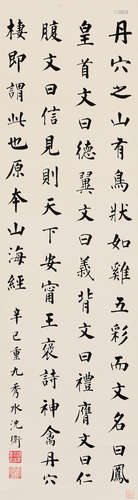 丹穴之山有鳥狀如雞五彩而文名曰鳳
皇首文曰德翼文曰義背文曰禮膺文曰仁
腹文曰信見則天下安甯王褒詩神禽丹穴
棲即謂此也原本山海經
辛巳重九秀水沈衛